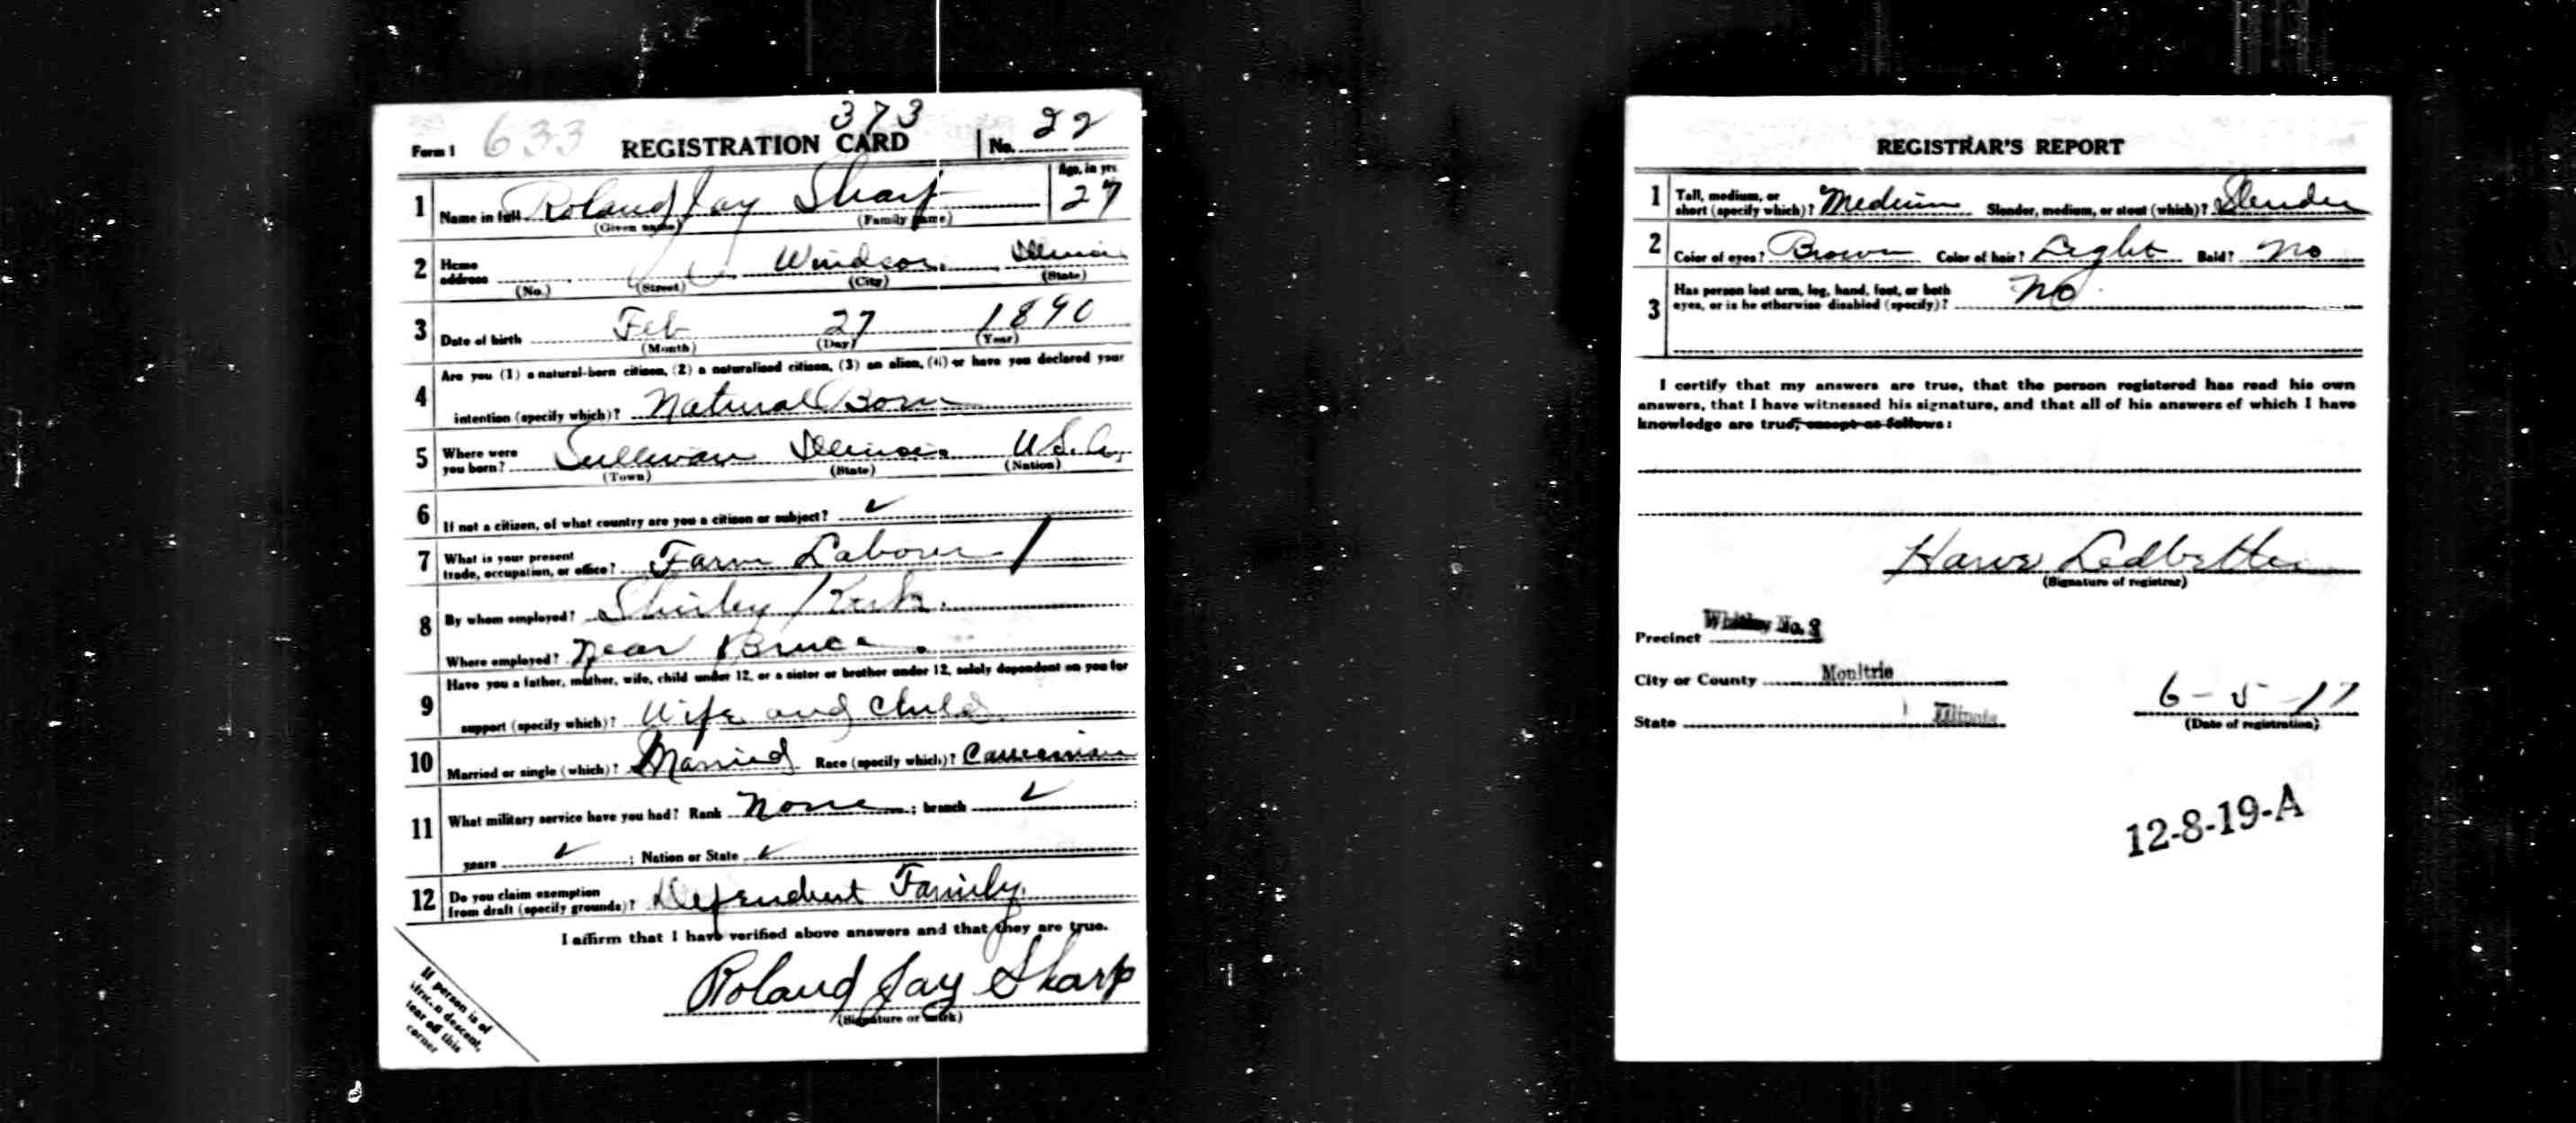 373
Form 1 633 REGISTRATION CARD No. 22
Age, in yrs
1 Name in full Roland Jay Sharp 27
(Given name) (Family name)
2 Home address Windsor, Illinois
(No.) (Street) (City) (State)
3 Date of birth Feb 27 1890
(Month) (Day) (Year)
Are you (1) a natural-born citizen, (2) a naturalized citizen, (3) an alien, (4) or have you declared your
4 intention (specify which)? Natural Born
5 Where were you born? Sullivan Illinois U.S.A.
(Town) (State) (Nation)
6 If not a citizen, of what country are you a citizen or subject? ✓
7 What is your present trade, occupation, or office? Farm Laborer /
8 By whom employed? Shirley Kirk.
Where employed? Near Bruce.
Have you a father, mother, wife, child under 12, or a sister or brother under 12, solely dependent on you for
9 support (specify which)? Wife and child
10 Married or single (which)? Married Race (specify which)? Caucasian
11 What military service have you had? Rank None ; branch ✓ ;
years ✓ ; Nation or State ✓
12 Do you claim exemption from draft (specify grounds)? Dependent Family.
I affirm that I have verified above answers and that they are true.
Roland Jay Sharp
(Signature or mark)
If person is of
African descent,
tear off this
corner
REGISTRAR'S REPORT
1 Tall, medium, or short (specify which)? Medium Slender, medium, or stout (which)? Slender
2 Color of eyes? Brown Color of hair? Light Bald? No
3 Has person lost arm, leg, hand, foot, or both
eyes, or is he otherwise disabled (specify)? No
I certify that my answers are true, that the person registered has read his own
answers, that I have witnessed his signature, and that all of his answers of which I have
knowledge are true, except as follows:
Ledbetter
(Signature of registrar)
Precinct Whitley No.
City or County Moultrie
State Illinois
6-5-17
(Date of registration)
12-8-19-A